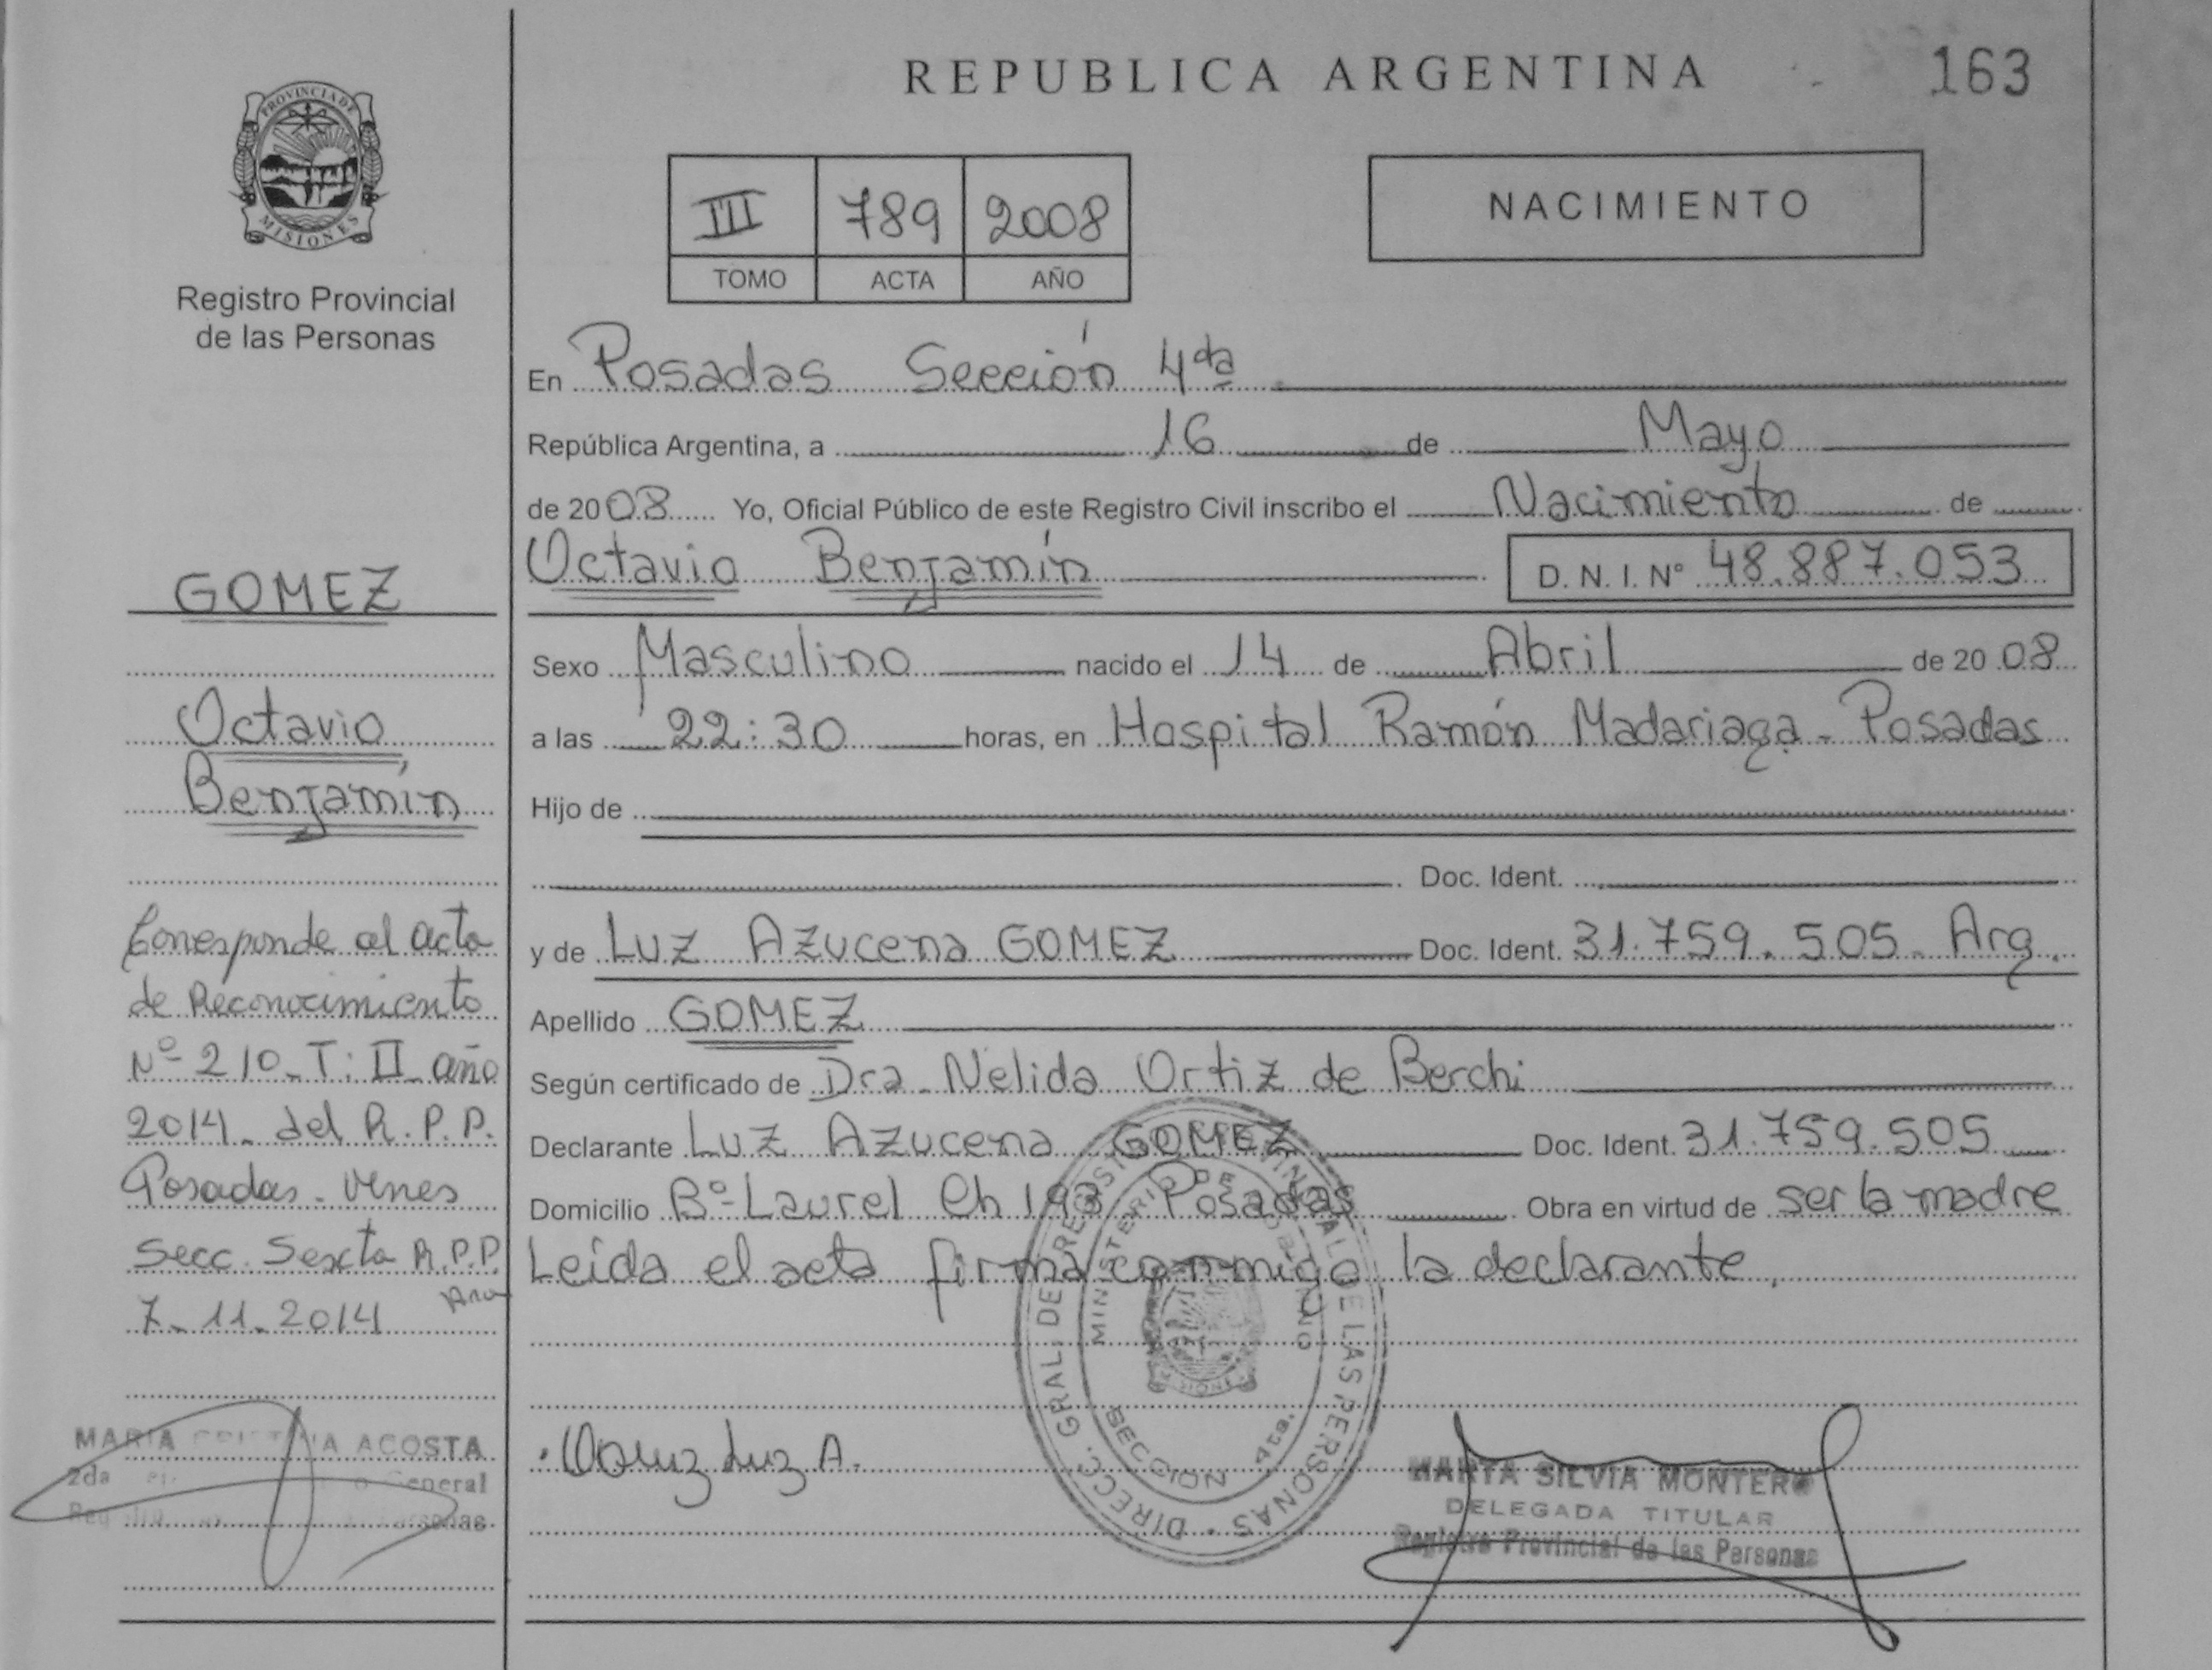 REPUBLICA ARGENTINA
163
PROVINCIA DE
MISIONES
Registro Provincial
de las Personas
III 789 2008
TOMO ACTA AÑO
NACIMIENTO
En Posadas Sección 4da
República Argentina, a 16 de Mayo
de 2008 Yo, Oficial Público de este Registro Civil inscribo el Nacimiento de
Octavio Benjamín D. N. I. Nº 48.887.053
Sexo Masculino nacido el 14 de Abril de 2008
a las 22:30 horas, en Hospital Ramón Madariaga - Posadas
Hijo de
Doc. Ident.
y de Luz Azucena GOMEZ Doc. Ident. 31.759.505- Arg.
Apellido GOMEZ
Según certificado de Dra. Nelida Ortiz de Berchi
Declarante Luz Azucena GOMEZ Doc. Ident. 31.759.505
Domicilio Bº Laurel Ch 193 Posadas Obra en virtud de ser la madre
Leída el acta firma conmigo la declarante.
GOMEZ
Octavio
Benjamín
Corresponde al acta
de Reconocimiento
Nº 210_T: II año
2014_ del R.P.P.
Posadas.
Secc. Sexta R.P.P.
7_11_2014
MARIA CRISTINA ACOSTA
2da General
Luz A.
DIRECC. GRAL. DE REGISTRO PROVINCIAL DE LAS PERSONAS
MINISTERIO DE GOBIERNO
SECCION 4ta.
MARTA SILVIA MONTERO
DELEGADA TITULAR
Registro Provincial de las Personas